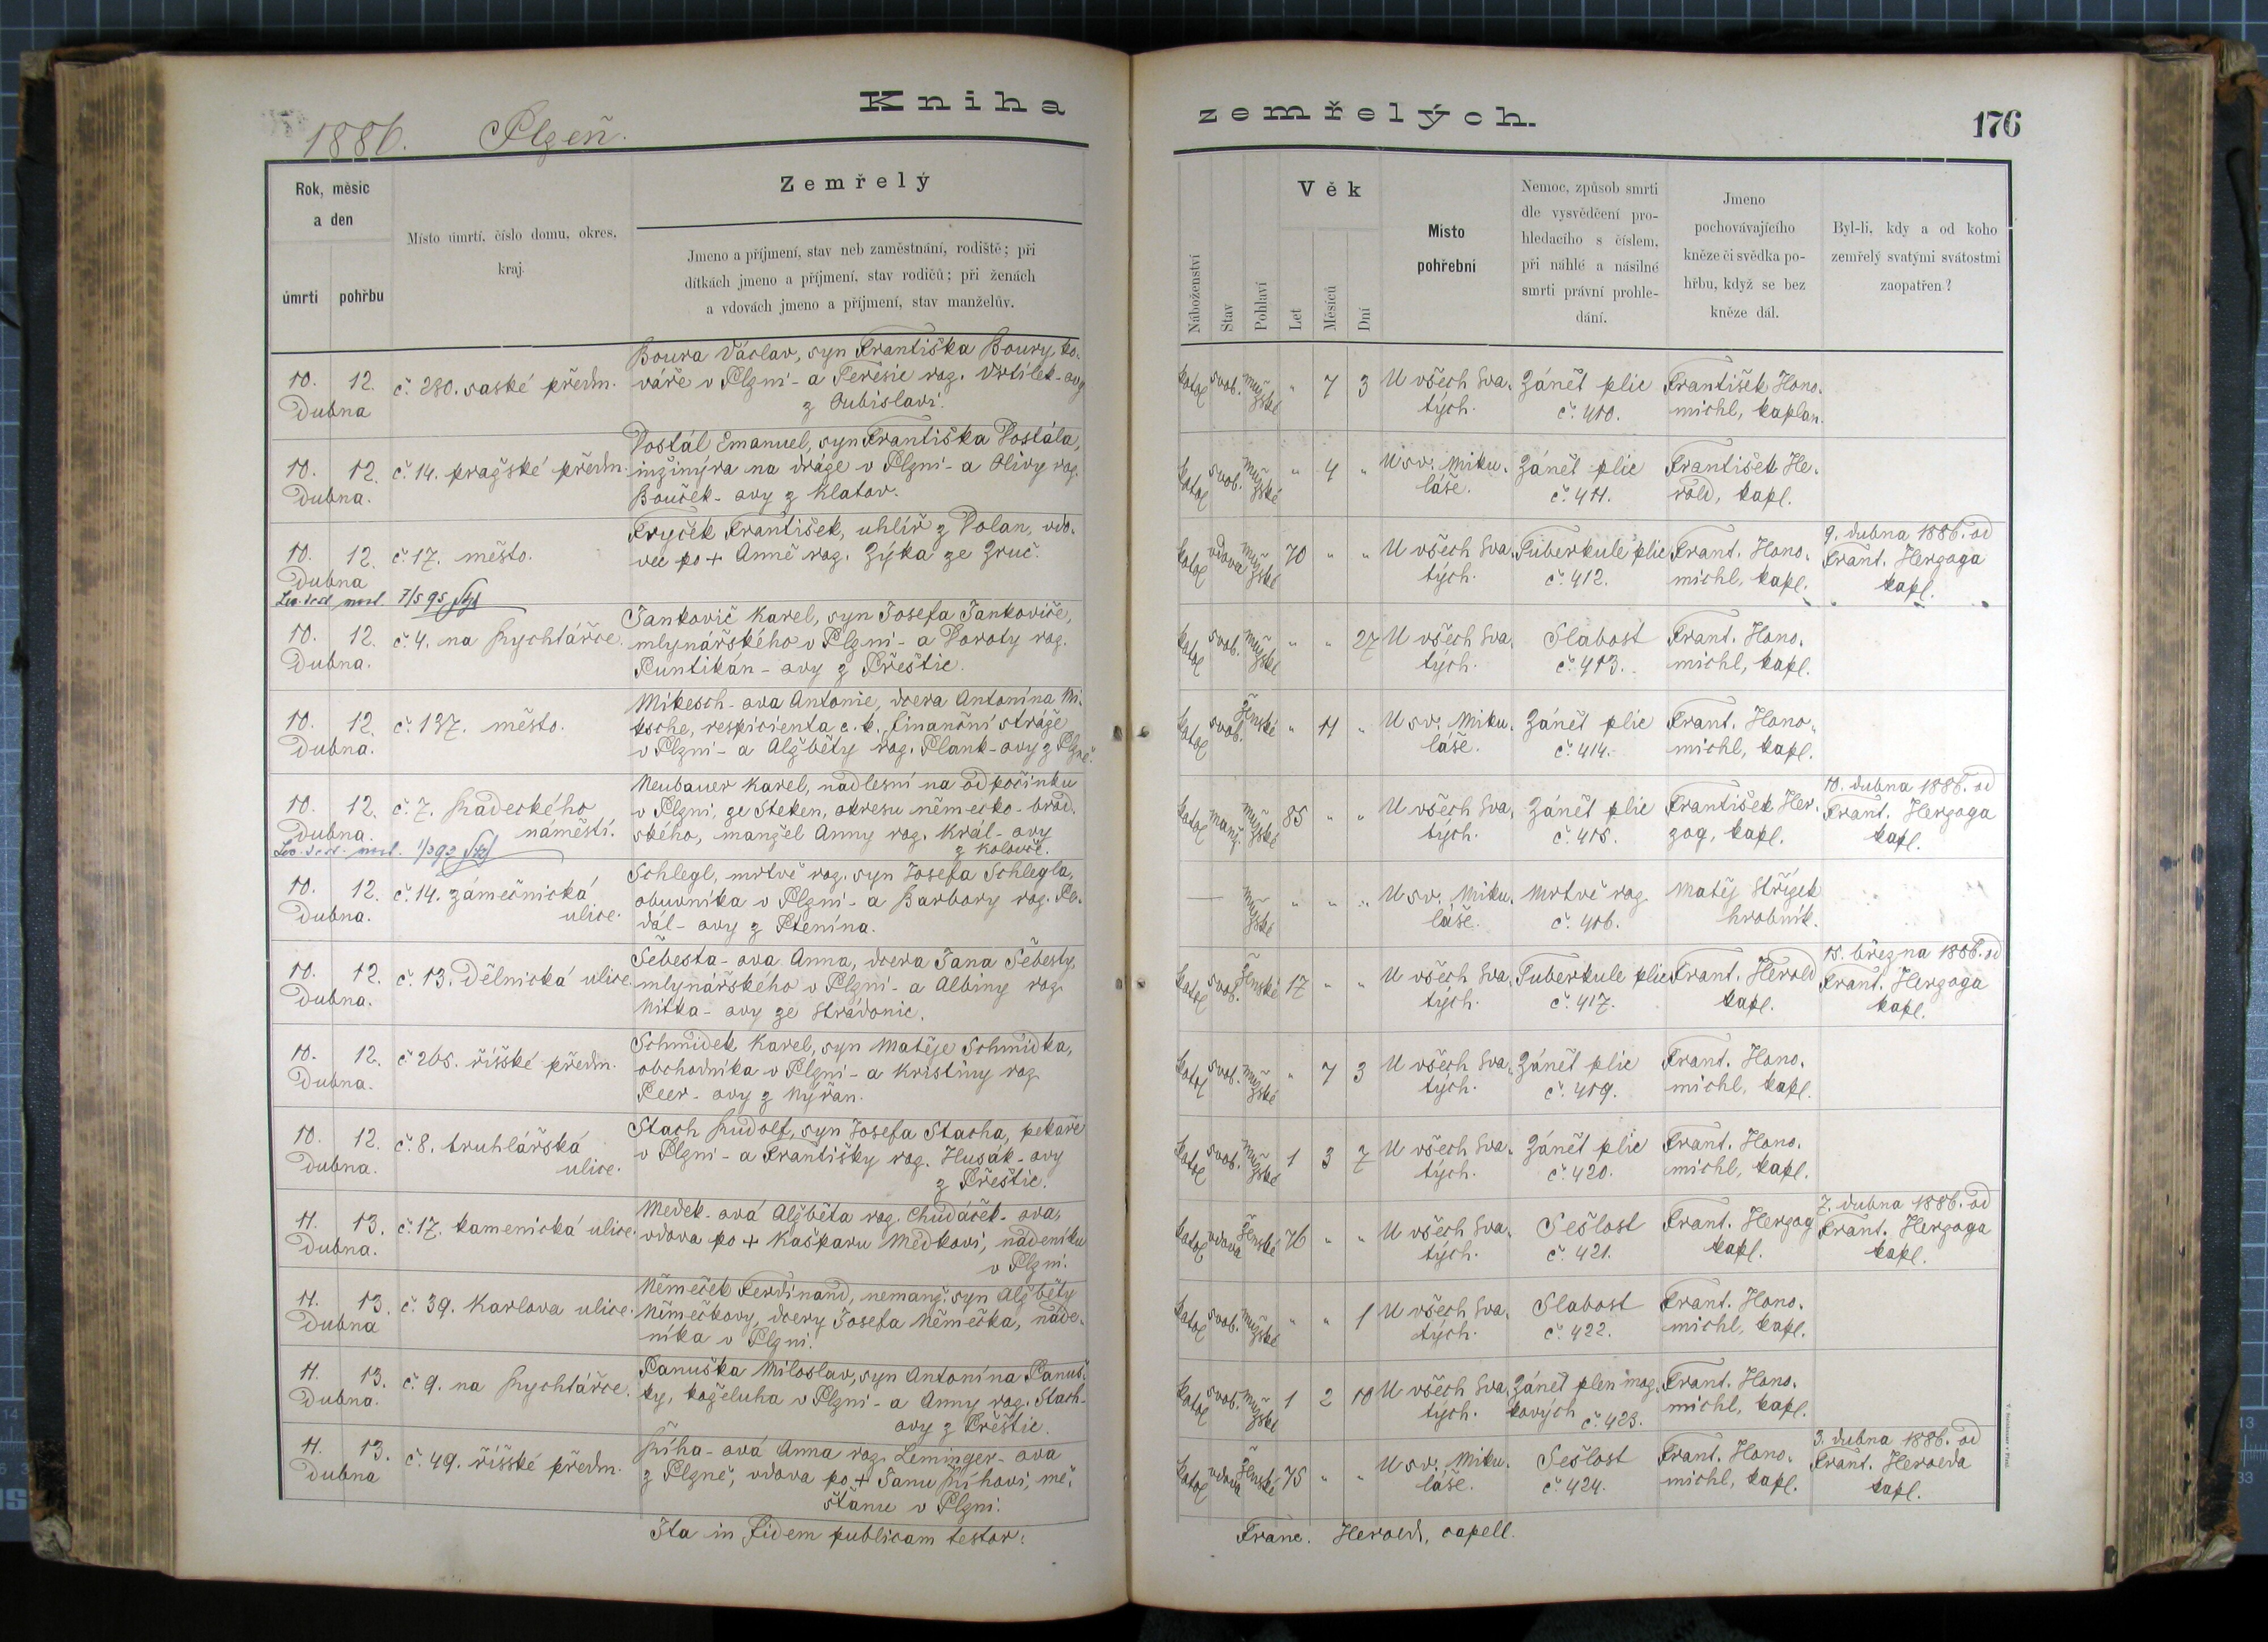 Kniha
zemřelých.
176
1886. Plzeň.
Rok, měsíc
a den
úmrtí
pohřbu
Místo úmrtí, číslo domu, okres,
kraj.
Zemřelý
Jmeno a příjmení, stav neb zaměstnání, rodiště; při
dítkách jmeno a příjmení, stav rodičů; při ženách
a vdovách jmeno a příjmení, stav manželův.
Náboženství
Stav
Pohlaví
Věk
Let
Měsíců
Dní
Místo
pohřební
Nemoc, způsob smrti
dle vysvědčení pro-
hledacího s číslem,
při náhlé a násilné
smrti právní prohle-
dání.
Jmeno
pochovávajícího
kněze či svědka po-
hřbu, když se bez
kněze dál.
Byl-li, kdy a od koho
zemřelý svatými svátostmi
zaopatřen?
Boura Václav, syn Františka Boury, ko-
10. 12. č. 280. saské předm. váře v Plzni - a Teresie roz. Vrtílek-ovy
Dubna z Dubislavi.
katol svob. mužské " 7 3 U všech Sva- Zánět plic František Hono-
tých. č. 410. michl, kaplan.
Dostál Emanuel, syn Františka Dostála,
10. 12. č. 14. pražské předm. inžinýra na dráze v Plzni - a Olivy roz.
Dubna. Bouček-ovy z Klatov.
katol svob. mužské " 4 " U sv. Miku- Zánět plic František He-
láše. č. 411. rold, kapl.
Fryček František, uhlíř z Dolan, vdo-
10. 12. č. 17. město. vec po + Anně roz. Zýka ze Zruč.
Dubna
7/5 95
katol vdova mužské 70 " " U všech Sva- Tuberkule plic Frant. Hono- 9. dubna 1886. od
tých. č. 412. michl, kapl. Frant. Herzoga
kapl.
Jankovič Karel, syn Josefa Jankoviče,
10. 12. č. 4. na Rychtářce. mlynářského v Plzni - a Doroty roz.
Dubna. Puntikán-ovy z Přeštic.
katol svob. mužské " " 27 U všech Sva- Slabost Frant. Hono-
tých. č. 413. michl, kapl.
Mikesch-ova Antonie, dcera Antonína Mi-
10. 12. č. 137. město. ksche, respicienta c. k. finanční stráže
Dubna. v Plzni - a Alžběty roz. Plank-ovy z Plzně.
katol svob. ženské " 11 " U sv. Miku- Zánět plic Frant. Hono-
láše. č. 414. michl, kapl.
Neubauer Karel, nadlesní na odpočinku
10. 12. č. 7. Radeckého v Plzni, ze Steken, okresu německo-brod-
Dubna. náměstí. ského, manžel Anny roz. Král-ovy
1/3 93 z Kolovče.
katol manž. mužské 85 " " U všech Sva- Zánět plic František Her- 10. dubna 1886. od
tých. č. 415. zog, kapl. Frant. Herzoga
kapl.
Schlegl, mrtvě roz. syn Josefa Schlegla,
10. 12. č. 14. zámečnická obuvníka v Plzni - a Barbory roz. Pe-
Dubna. ulice. dál-ovy z Ptenína.
— mužské " " " U sv. Miku- Mrtvě roz. Matěj Střízek
láše. č. 416. hrobník.
Šebesta-ova Anna, dcera Jana Šebesty,
10. 12. č. 13. Dělnická ulice. mlynářského v Plzni - a Albiny roz.
Dubna. Nitka-ovy ze Strádonic.
katol svob. ženské 17 " " U všech Sva- Tuberkule plic Frant. Herold 15. března 1886. od
tých. č. 417. kapl. Frant. Herzoga
kapl.
Schmidek Karel, syn Matěje Schmidka,
10. 12. č. 265. říšské předm. obchodníka v Plzni - a Kristiny roz.
Dubna. Peer-ovy z Nýřan.
katol svob. mužské " 7 3 U všech Sva- Zánět plic Frant. Hono-
tých. č. 419. michl, kapl.
Stach Rudolf, syn Josefa Stacha, pekaře
10. 12. č. 8. truhlářská v Plzni - a Františky roz. Husák-ovy
Dubna. ulice. z Přeštic.
katol svob. mužské 1 3 7 U všech Sva- Zánět plic Frant. Hono-
tých. č. 420. michl, kapl.
Medek-ová Alžběta roz. Chudáček-ova,
11. 13. č. 17. kamenická ulice. vdova po + Kašparu Medkovi, nádeníku
Dubna. v Plzni.
katol vdova ženské 76 " " U všech Sva- Sešlost Frant. Herzog 7. dubna 1886. od
tých. č. 421. kapl. Frant. Herzoga
kapl.
Němeček Ferdinand, nemanž. syn Alžběty
11. 13. č. 39. Karlova ulice. Němečkovy, dcery Josefa Němečka, náde-
Dubna níka v Plzni.
katol svob. mužské " " 1 U všech Sva- Slabost Frant. Hono-
tých. č. 422. michl, kapl.
Panuška Miloslav, syn Antonína Panuš-
11. 13. č. 9. na Rychtářce. ky, koželuha v Plzni - a Anny roz. Stach-
Dubna. ovy z Přeštic.
katol svob. mužské 1 2 10 U všech Sva- Zánět plen moz- Frant. Hono-
tých. kových č. 423. michl, kapl.
Říha-ová Anna roz. Leminger-ova
11. 13. č. 49. říšské předm. z Plzně, vdova po + Janu Říhovi, mě-
Dubna šťanu v Plzni.
katol vdova ženské 75 " " U sv. Miku- Sešlost Frant. Hono- 3. dubna 1886. od
láše. č. 424. michl, kapl. Frant. Herolda
kapl.
Ita in fidem publicam testor:
Franc. Herold, capell.